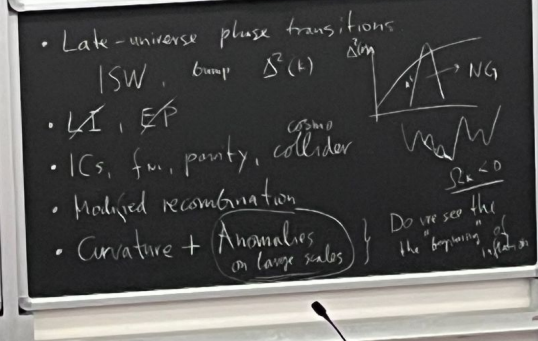 • Late-universe phase transitions
ISW, bump Δ²(k)
Δ²(k)
→ NG
• L̸I̸, E̸P̸
• ICs, fNL, parity, cosmo collider
Ωk < 0
• Modified recombination
• Curvature + Anomalies on large scales
Do we see the
the "beginning" of
inflation